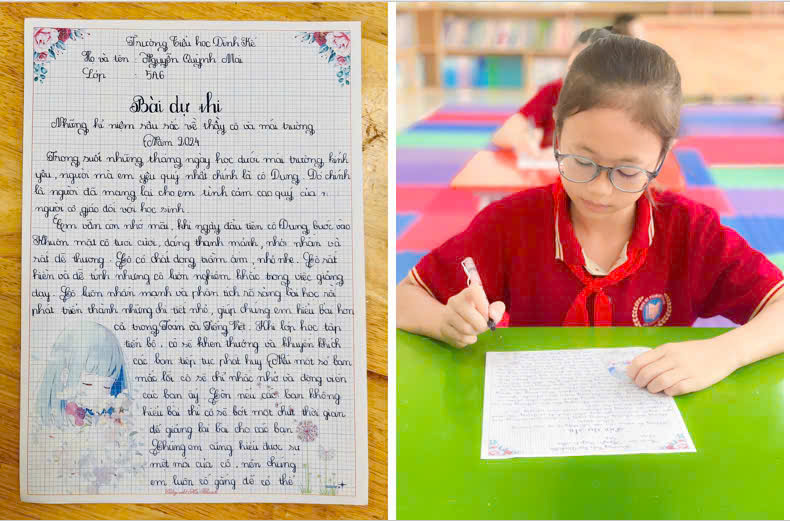 Trường Tiểu học Dĩnh Kế
Họ và tên : Nguyễn Quỳnh Mai
Lớp : 5A6
Bài dự thi
Những kỉ niệm sâu sắc về thầy cô và mái trường
Năm 2024
Trong suốt những tháng ngày học dưới mái trường kính
yêu, người mà em yêu quý nhất chính là cô Dung. Đó chính
là người đã mang lại cho em tình cảm cao quý của
người cô giáo đối với học sinh.
Em vẫn còn nhớ mãi, khi ngày đầu tiên cô Dung bước vào
Khuôn mặt cô tươi cười, dáng thanh mảnh, nhỏ nhắn và
rất dễ thương. Cô có chất giọng trầm ấm, nhỏ nhẹ. Cô rất
hiền và dễ tính nhưng cô luôn nghiêm khắc trong việc giảng
dạy. Cô luôn nhấn mạnh và phân tích rõ ràng bài học rồi
phát triển thành những chi tiết nhỏ, giúp chúng em hiểu bài hơn
cả trong Toán và Tiếng Việt. Khi lớp học tập
tiến bộ, cô sẽ khen thưởng và khuyến khích
các bạn tiếp tục phát huy. Nếu một số bạn
mắc lỗi cô sẽ chỉ nhắc nhở và động viên
các bạn ấy. Còn nếu các bạn không
hiểu bài thì cô sẽ bớt một chút thời gian
để giảng lại bài cho các bạn.
Chúng em cũng hiểu được sự
mệt mỏi của cô, nên chúng
em luôn cố gắng để cô thể